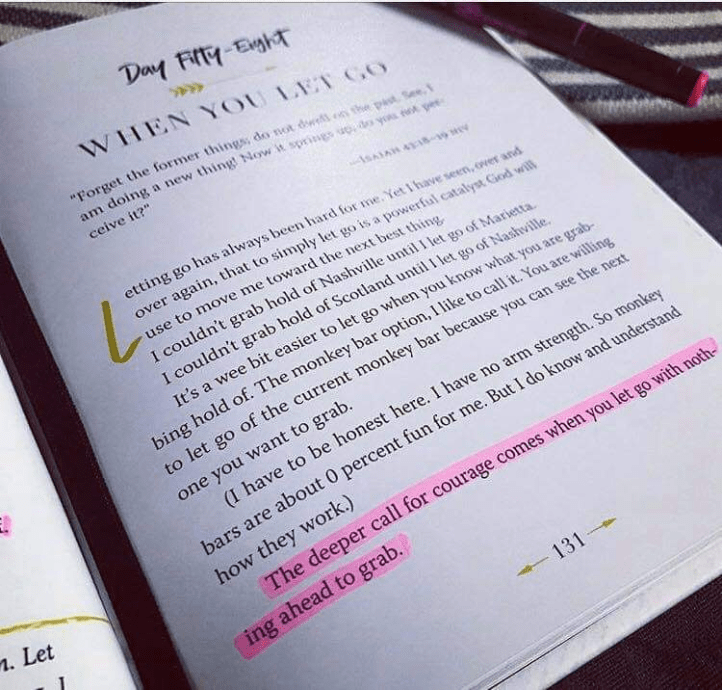 Day Fifty-Eight
WHEN YOU LET GO
"Forget the former things; do not dwell on the past. See, I
am doing a new thing! Now it springs up; do you not per-
ceive it?"
—ISAIAH 43:18–19 NIV
Letting go has always been hard for me. Yet I have seen, over and
over again, that to simply let go is a powerful catalyst God will
use to move me toward the next best thing.
I couldn't grab hold of Nashville until I let go of Marietta.
I couldn't grab hold of Scotland until I let go of Nashville.
It's a wee bit easier to let go when you know what you are grab-
bing hold of. The monkey bar option, I like to call it. You are willing
to let go of the current monkey bar because you can see the next
one you want to grab.
(I have to be honest here. I have no arm strength. So monkey
bars are about 0 percent fun for me. But I do know and understand
how they work.)
The deeper call for courage comes when you let go with noth-
ing ahead to grab.
131
n. Let